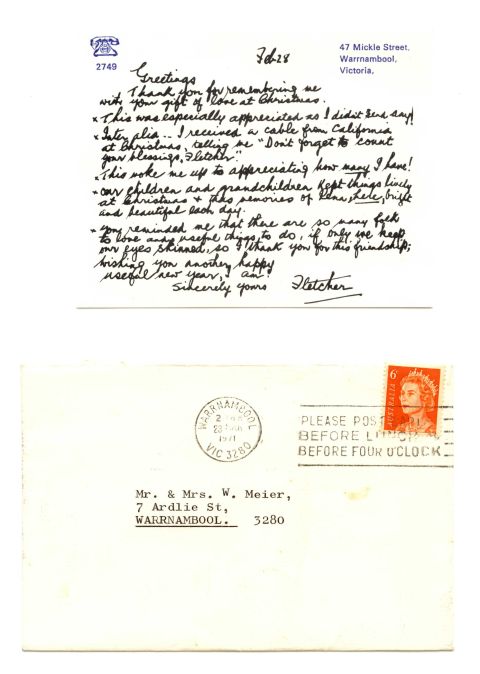 2749
Feb 28
47 Mickle Street,
Warrnambool,
Victoria,
Greetings
Thank you for remembering me
with your gift of love at Christmas.
* This was especially appreciated as I didn't send any!
* Inter alia.. I received a cable from California
at Christmas, telling me "Don't forget to count
your blessings, Fletcher".
* This woke me up to appreciating how many I have!
* our children and grandchildren kept things lively
at Christmas + the memories of here, bright
and beautiful each day.
* You reminded me that there are so many folk
to love and useful things to do, if only we keep
our eyes skinned, so I thank you for this friendship;
wishing you another happy
useful new year, I am!
Sincerely yours Fletcher
6c
AUSTRALIA
WARRNAMBOOL
1971
VIC 3280
PLEASE POST
BEFORE LUNCH
BEFORE FOUR O'CLOCK
Mr. & Mrs. W. Meier,
7 Ardlie St,
WARRNAMBOOL. 3280